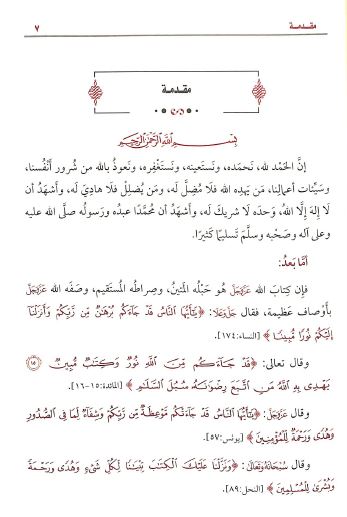 مقدمة ٧
مقدمة
بِسْمِ اللَّهِ الرَّحْمَٰنِ الرَّحِيمِ
إنَّ الحَمْد لله، نَحمَده، ونَستَعينه، ونَستَغفِره، ونَعوذُ بالله من شُرور أَنْفُسنا،
وسيِّئات أعمالِنا، مَن يَهدِه الله فلَا مُضِلَّ لَه، ومَن يُضلِلْ فلَا هادِيَ لَه، وأَشهَدُ أن
لَا إلهَ إلَّا اللهُ، وَحدَه لَا شَريكَ لَه، وأَشهَدُ أن محُمَّدًا عبدُه ورَسولُه صلَّى الله عليه
وعلى آله وصَحْبه وسلَّمَ تَسليمًا كَثيرًا.
أمَّا بَعدُ:
فإن كِتابَ الله عَزَّوَجَلَّ هو حَبْلُه المَتينُ، وصِراطُه المُستَقيم، وصَفَه الله عَزَّوَجَلَّ
بأَوْصاف عَظيمة، فقال جَلَّوَعَلَا: ﴿يَٰٓأَيُّهَا ٱلنَّاسُ قَدْ جَآءَكُم بُرْهَٰنٌ مِّن رَّبِّكُمْ وَأَنزَلْنَآ
إِلَيْكُمْ نُورًا مُّبِينًا﴾ [النساء:١٧٤].
وقال تعالى: ﴿قَدْ جَآءَكُم مِّنَ ٱللَّهِ نُورٌ وَكِتَٰبٌ مُّبِينٌ ١٥
يَهْدِى بِهِ ٱللَّهُ مَنِ ٱتَّبَعَ رِضْوَٰنَهُۥ سُبُلَ ٱلسَّلَٰمِ﴾ [المائدة:١٥-١٦].
وقال عَزَّوَجَلَّ: ﴿يَٰٓأَيُّهَا ٱلنَّاسُ قَدْ جَآءَتْكُم مَّوْعِظَةٌ مِّن رَّبِّكُمْ وَشِفَآءٌ لِّمَا فِى ٱلصُّدُورِ
وَهُدًى وَرَحْمَةٌ لِّلْمُؤْمِنِينَ﴾ [يونس:٥٧].
وقال سُبْحَانَهُ وَتَعَالَى: ﴿وَنَزَّلْنَا عَلَيْكَ ٱلْكِتَٰبَ تِبْيَٰنًا لِّكُلِّ شَىْءٍ وَهُدًى وَرَحْمَةً
وَبُشْرَىٰ لِلْمُسْلِمِينَ﴾ [النحل:٨٩].